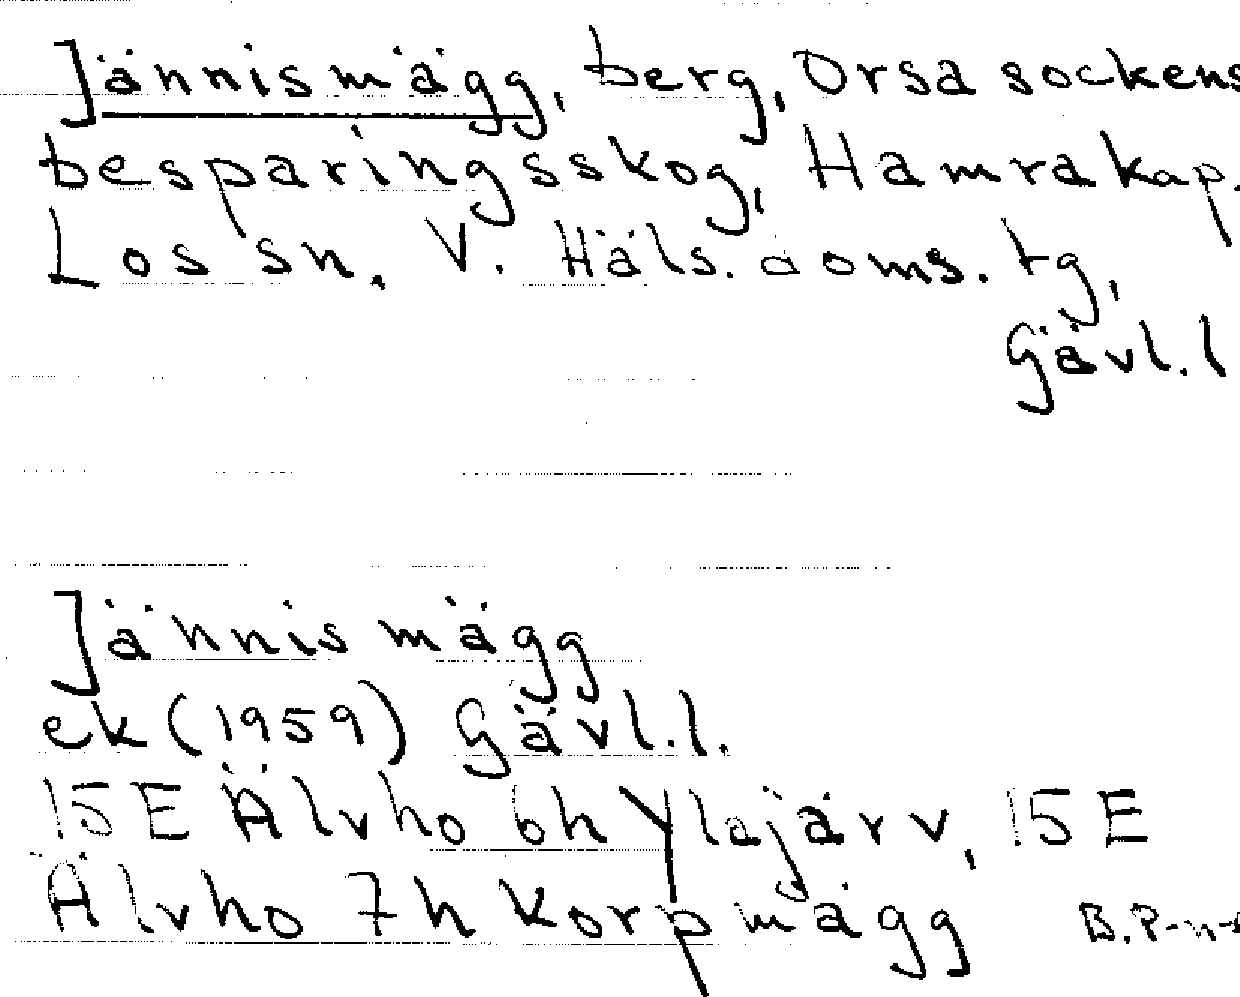 Jännismägg, berg, Orsa sockens
besparingsskog, Hamra kap.
Los sn, V. Häls. doms. tg,
Gävl. l
Jännismägg
ek (1959) Gävl. l.
15E Älvho 6h Ylajärv, 15E
Älvho 7h Korpmägg B.P-n-